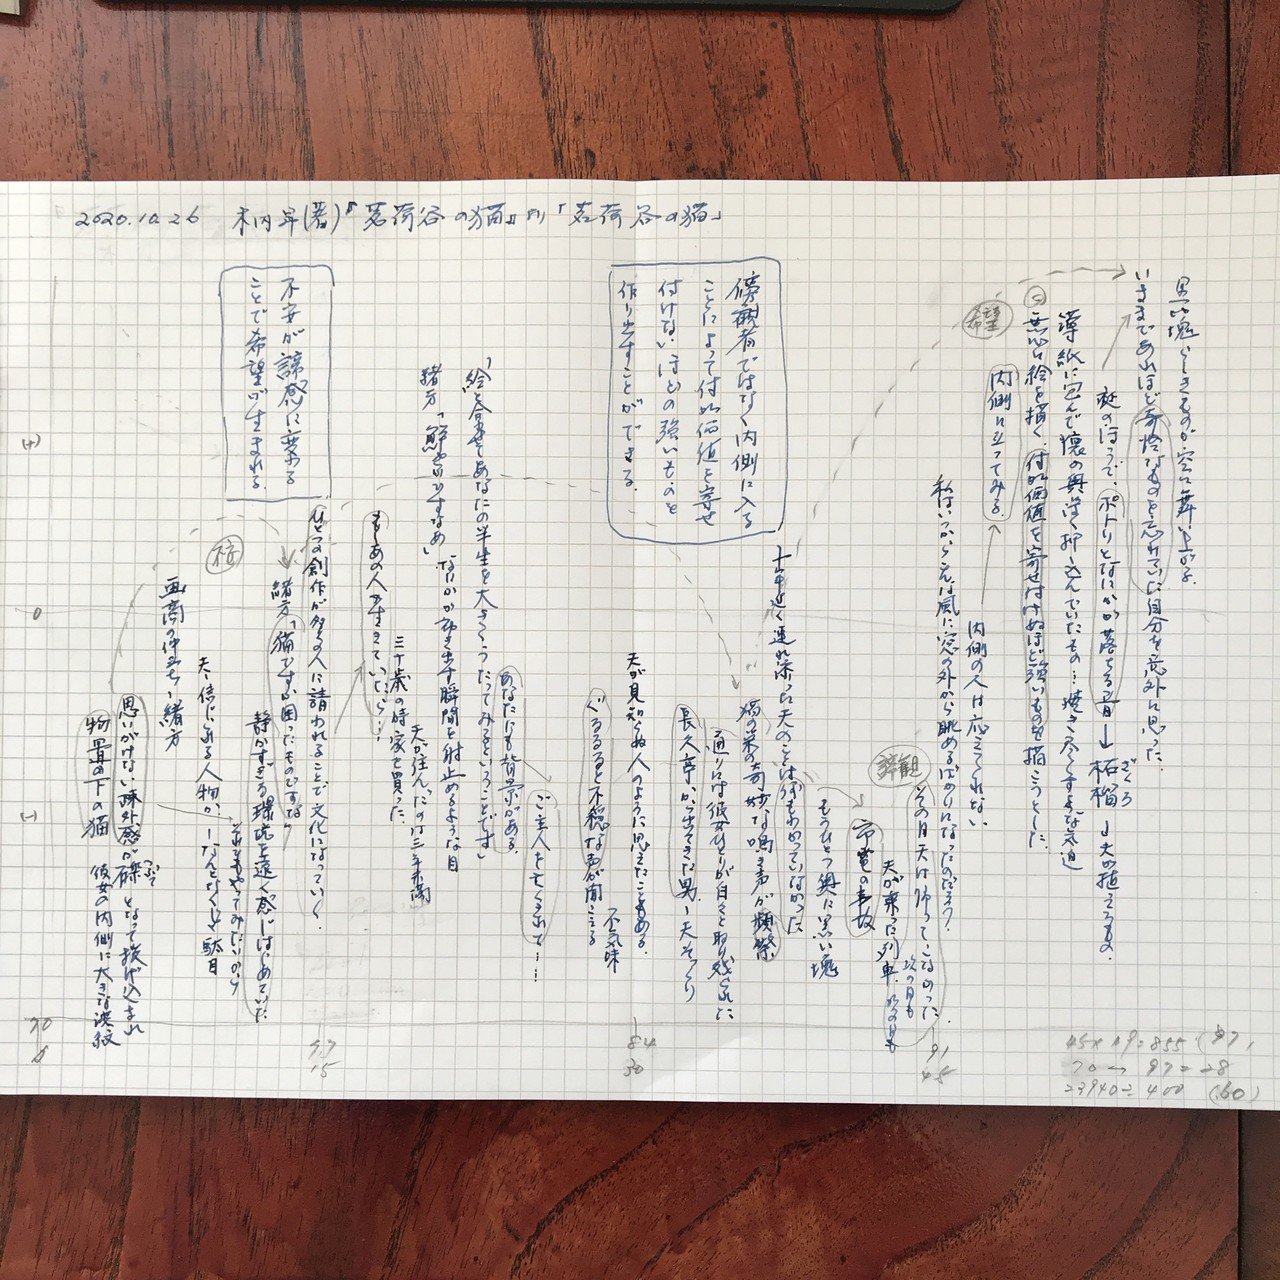 2020.10.26 木内昇(著)『茗荷谷の猫』より「茗荷谷の猫」
黒い塊らしきものが空に舞い上がる。
いままであれほど奇怪なものを忘れていた自分を意外に思った。
庭のほうで、ポトリとなにかが落ちる音→柘榴→夫が植えたもの。
ざくろ
薄紙に包んで懐の奥深く押し込んでいたもの…焼き尽くすような気迫
無心に絵を描く。付加価値を寄せ付けぬほど強いものを描こうとした。
希望
内側に立ってみる。
内側の人は応えてくれない
私はいつからこんな風に窓の外から眺めるばかりになったのだろう?
その日夫は帰ってこなかった。
次の日も
諦観
夫が乗った列車
市電の事故
もうひとつ奥に黒い塊
十年近く連れ添った夫のことは何もわかっていなかった
猫の栄の奇妙な鳴き声が頻繁
通りには彼女ひとりが白々と取り残された
長久亭から出てきた男→夫そっくり
傍観者ではなく内側に入る
ことによって付加価値を寄せ
付けないほどの強いものを
作り出すことができる。
夫が見知らぬ人のように思えたこともある。
ぐるるると不穏な声が聞こえる
不気味
ご主人を亡くされて……
あなたにも背景がある。
「絵と合わせてあなたの半生を大きくうたってみるということです」
緒方「鮮やかですなあ」
なにかが動き出す瞬間を射止めるような目
夫が住んだのは三年未満
三十歳の時家を買った。
もしあの人が生きていたら……
不安が諦感に変わる
ことで希望が生まれる。
ひとつの創作が多くの人に請われることで文化になっていく。
緒方「猫ですか困ったものですな」
静かすぎる環境を遠く感じはじめていた
それでもやってみたいから
不安
夫→信じられる人物か→なんとなく→駄目
画商の仲立ち→緒方
思いがけない疎外感が礫となって投げ込まれ
つぶて
物置の下の猫 彼女の内側に大きな波紋
(+)
0
(-)
70
97
15
84
30
91
45
45×19=855 (57,
70→97=28
23940÷400 (60)